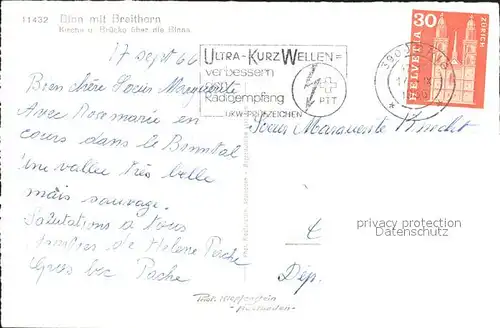 11432 Binn mit Breithorn
Kirche u. Brücke über die Binna
17 sept 66
Bien chère Soeur Marguerite
Avec Rosemarie en
cours dans le Binntal
une vallée très belle
mais sauvage.
Salutations à vous
de Helene
Gros bec
ULTRA-KURZWELLEN=
verbessern
Radioempfang
UKW-PRÜFZEICHEN
PTT
30
HELVETIA
ZÜRICH
Soeur Marguerite Knecht
privacy protection
Datenschutz
Dép.
Phot. Klopfenstein
Adelboden